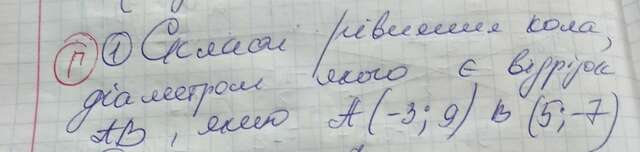 П 1 Скласти рівняння кола,
діаметром якого є відрізок
AB, якщо A(-3; 9) B (5; -7)